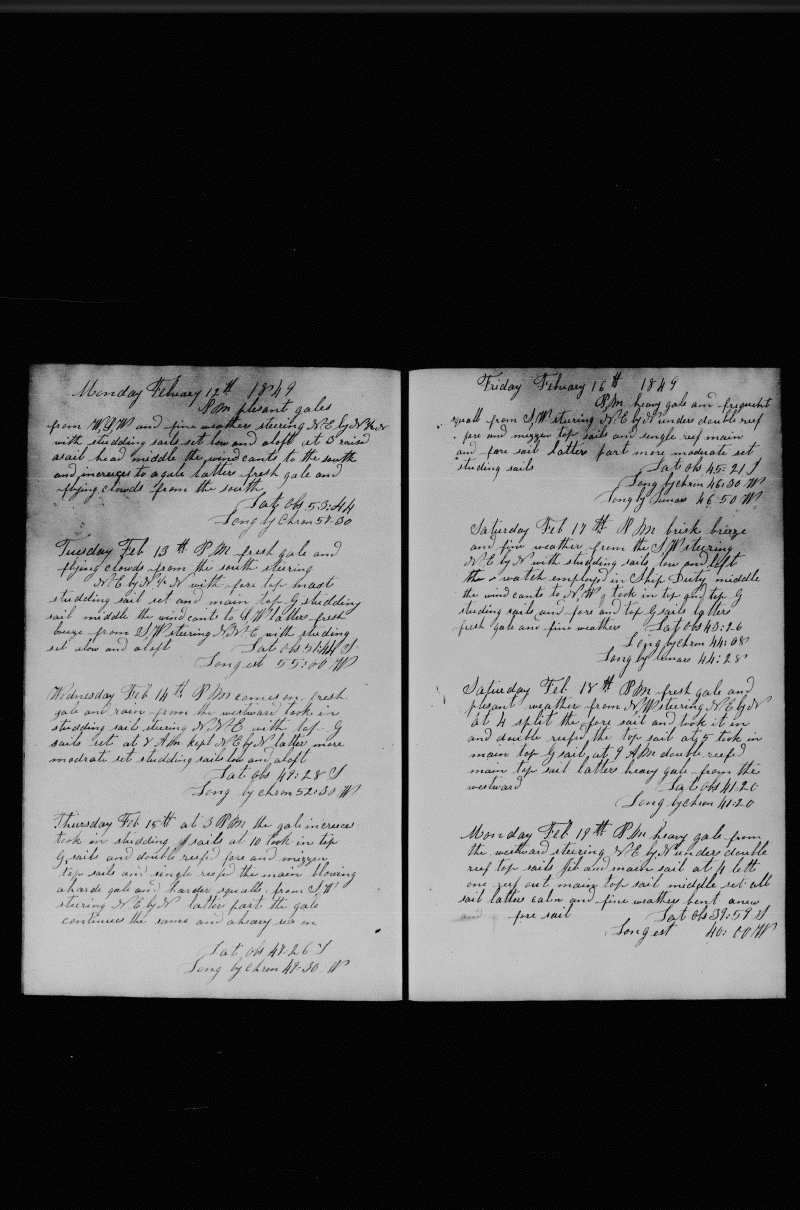 Monday Febuary 12th 1849
P M plesant gales
from W,S,W and fine weather steering N E by N ½ N
with studding sails set low and aloft at 3 raised
a sail head middle the wind cants to the south
and increces to a gale latters fresh gale and
flying clowds from the south
Lat obs 53:44
Long by Chron 57:30
Tuesday Feb 13th P M fresh gale and
flying clowds from the south steering
N E by N ½ N with fore top mast
studding sail set and main top G studding
sail middle the wind cants to S,W latters fresh
breeze from S,W steering N.N.E with studing
set alow and aloft Lat obs 51:44 S
Long est 55:00 W
Wednesday Feb 14th P M comes on fresh
gale and rain from the westward took in
studding sails steering N N E with top G
sails set at 8 A M kept N E by N latter more
modrate set studding sails low and aloft
Lat obs 49:28 S
Long by chron 52:30 W
Thursday Feb 15th at 3 P M the gale increces
took in studding sails at 10 took in top
G, sails and double reefd fore and mizzen
top sails and single reefd the main blowing
a hard gale and harder squalls from S,W
steering N E by N latter part the gale
continues the same and a heavy sea on
Lat obs 47:26 S
Long by chron 49:30 W
Friday Febuary 16th 1849
P,M heavy gale and frequent
squall from S,W steering N E by N under double reef
fore and mizzen top sails and single reef main
and fore sail latters part more moderate set
studing sails Lat obs 45:21 S
Long by chron 46:30 W
Long by Lunars 46:50 W
Saturday Feb 17th P M brisk breeze
and fine weather from the S,W steering
N E by N with studding sails low and loft
the watch employd in Ship Duty middle
the wind cants to N,W took in top and top G
studing sails and fore and top G sails latters
fresh gale and fine weather Lat obs 43:26
Long by chron 44:08
Long by Lunars 44:28
Saturday Feb 18th P M fresh gale and
plesant weather from N,W steering N E by N
at 4 split the fore sail and took it in
and double reefd the top sail at 5 took in
main top G sail, at 9 A M double reefd
main top sail latters heavy gale from the
westward Lat obs 41:20
Long by chron 41:20
Monday Feb 19th P M heavy gale from
the westward steering N E by N under double
reef top sails jib and main sail at 4 lett
one reef out main top sail middle set all
sail latters calm and fine weather bent a new
and fore sail Lat obs 39:59 S
Long est 40:00 W